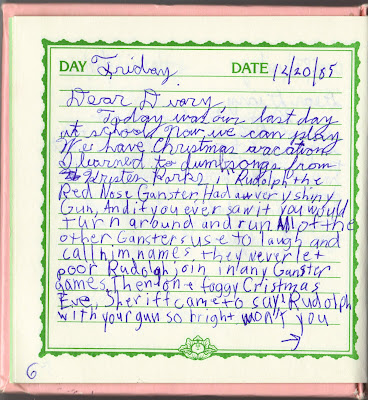 DAY Friday DATE 12/20/85
Dear Diary,
Today was our last day
at school. Now, we can play
We have Christmas vacation
I learned to dum songs from
Kristen Karks, "Rudolph the
Red Nose Ganster, Had a very shiny
Gun, And if you ever saw it you would
turn around and run All of the
other Gansters use to laugh and
call him names, they never let
poor Rudolph join in any Ganster
games, Then one foggy Cristmas
Eve, Sheriff came to say! Rudolph
with your gun so bright won't you
→
6